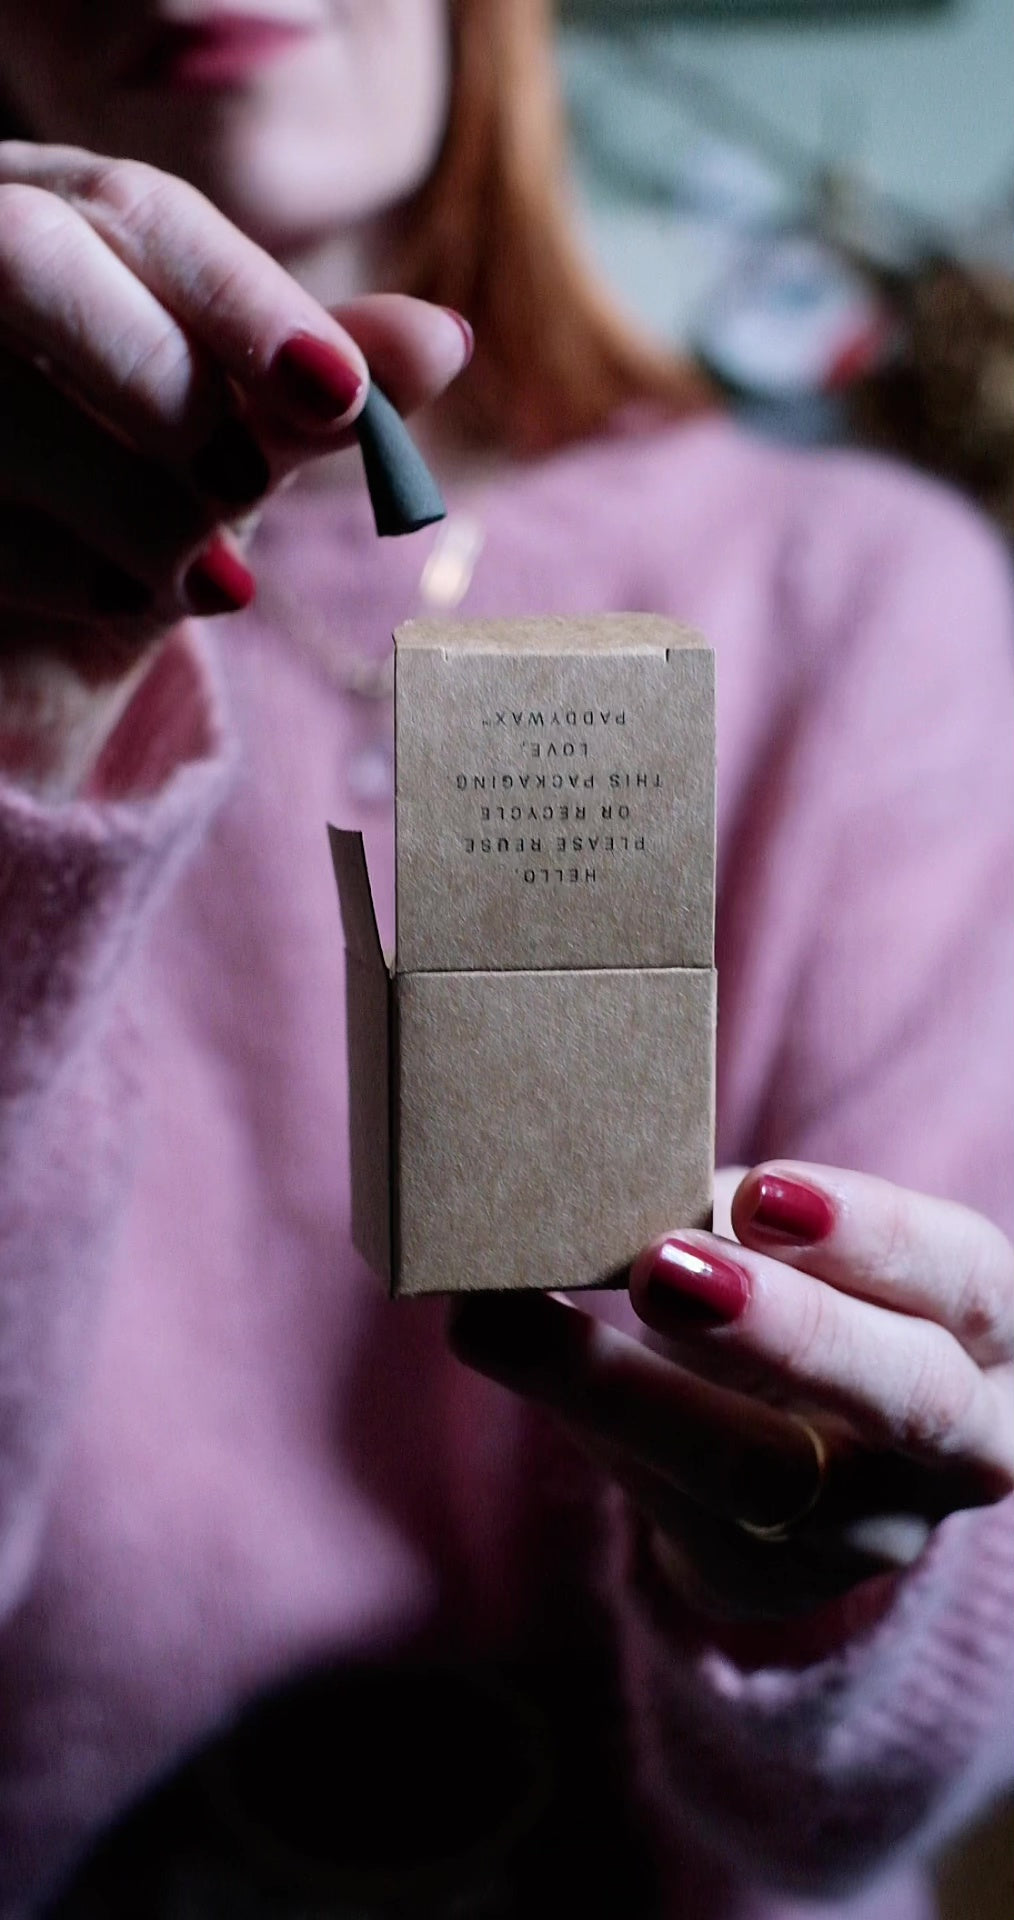 HELLO,
PLEASE REUSE
OR RECYCLE
THIS PACKAGING.
LOVE,
PADDYWAX™